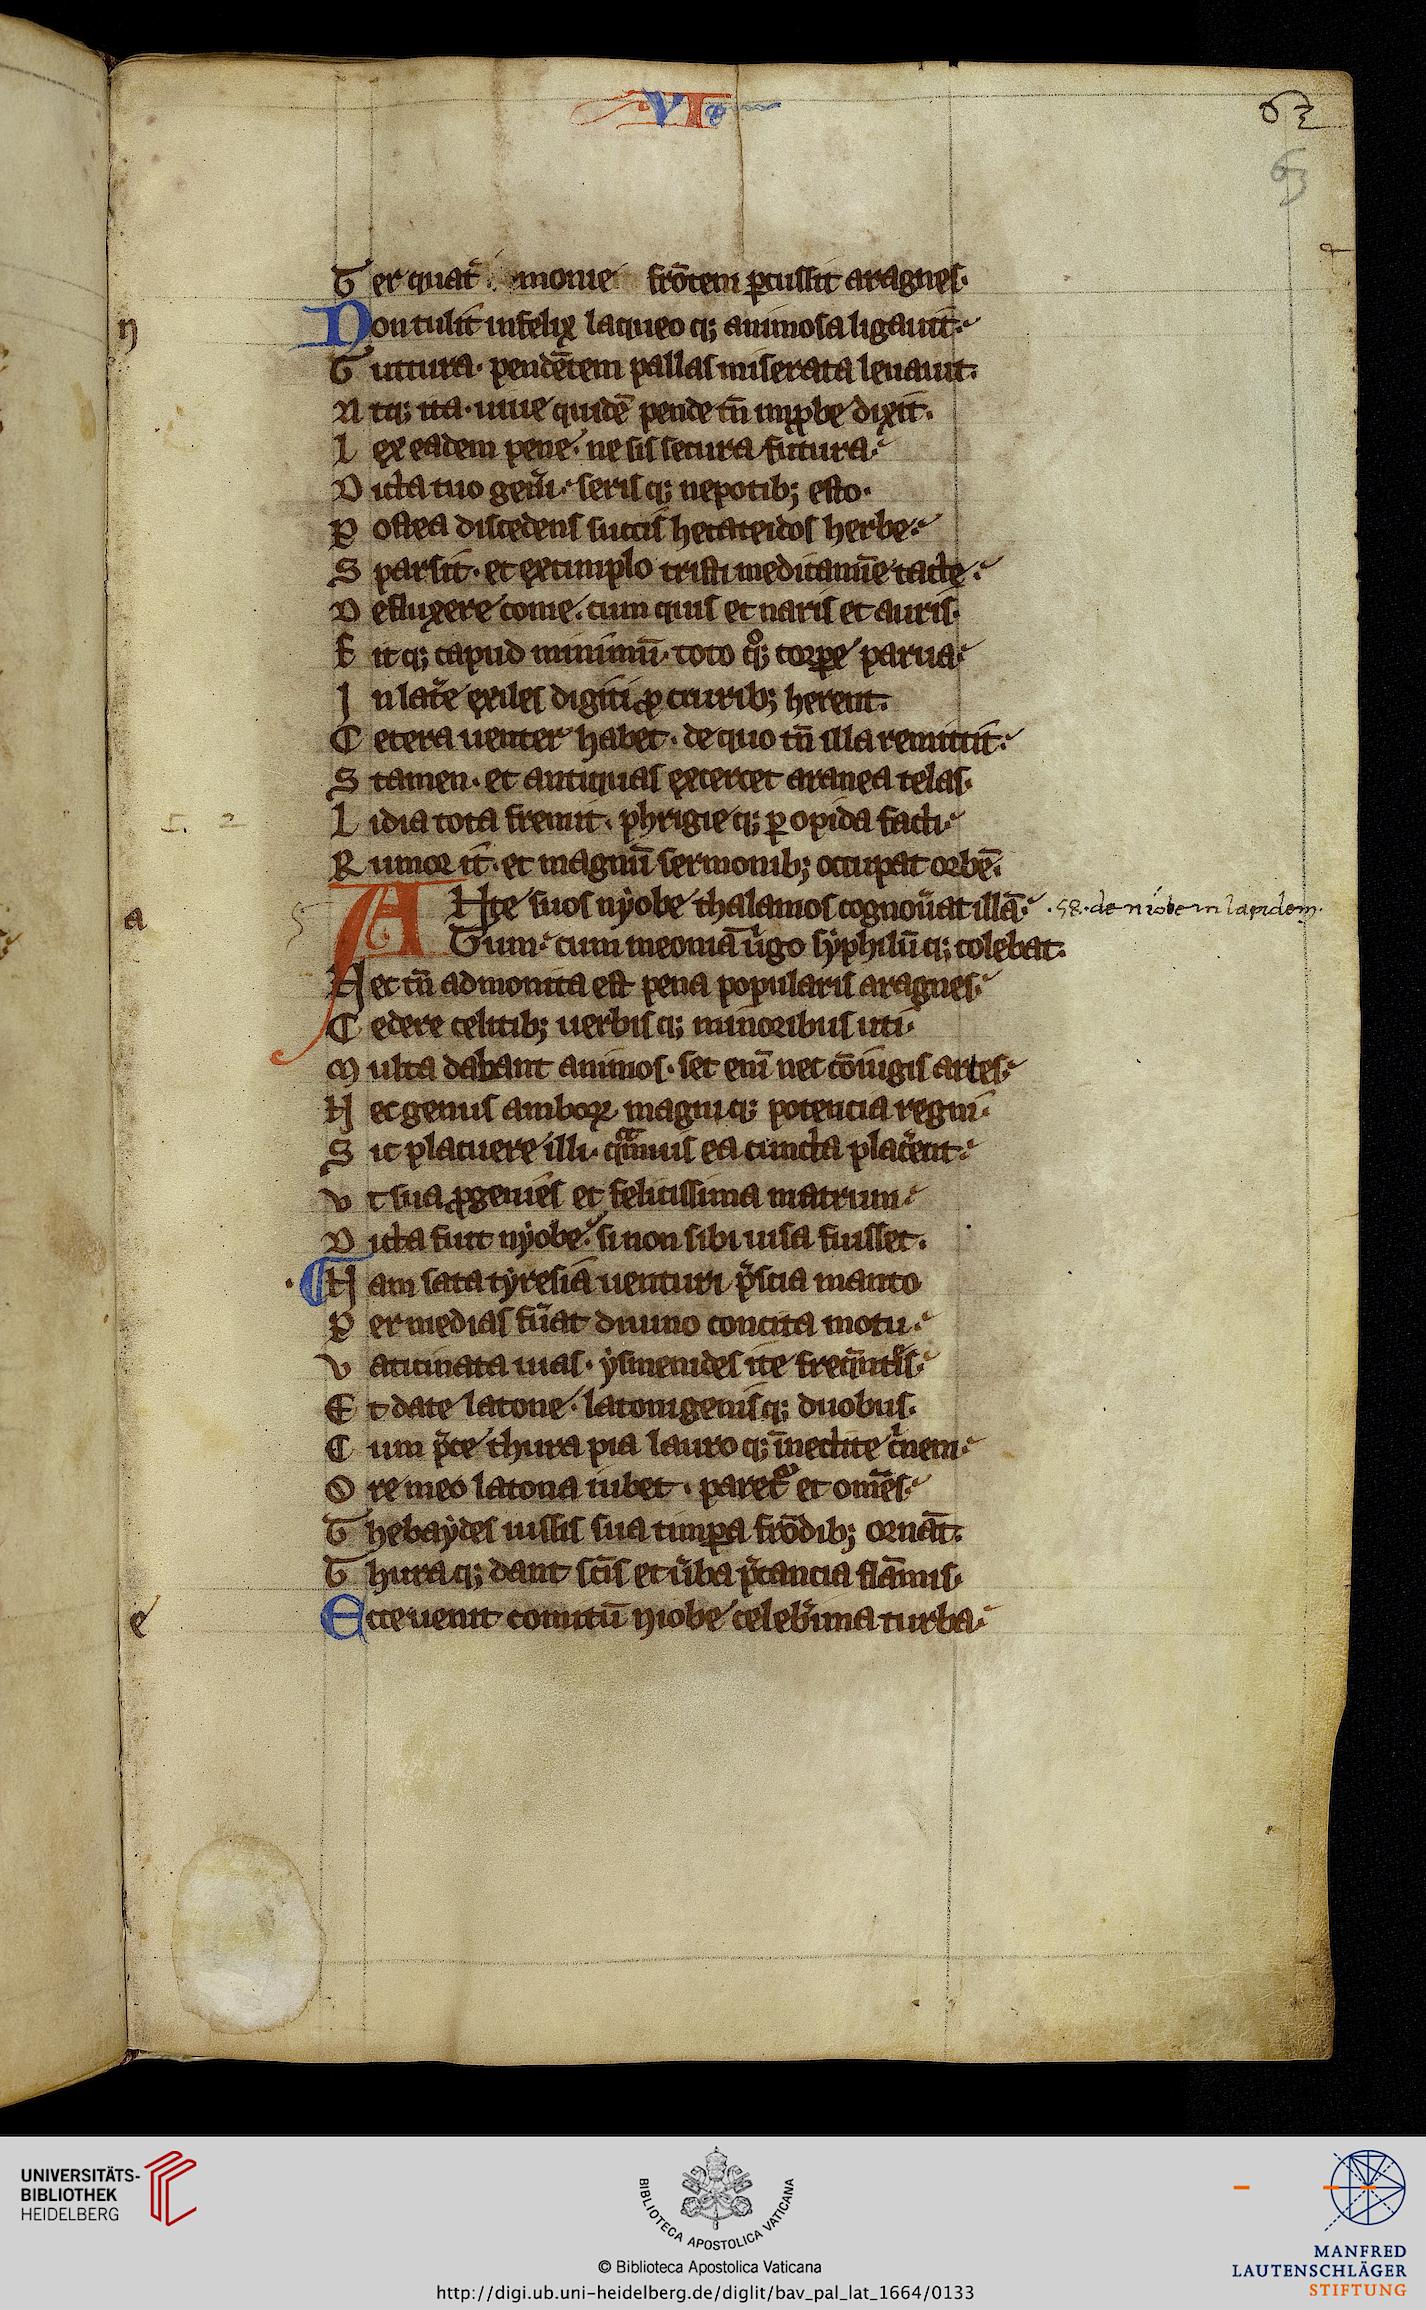 VIus
62
63
T er quat̄ monie frōtem ꝑcussit aragnes·
n
Non tulit infelix laqueo qꝫ animosa ligauit·
G uttura· pendētem pallas miserata leuauit·
A tqꝫ ita· uiue quidē pende tn̄ imꝓbe dixit·
L ex eadem pene· ne sis secura futura·
D icta tuo gen̄i· seris qꝫ nepotibꝫ esto·
P ostea discedens succis hecateidos herbe·
S parsit· et extimplo tristi medicamīe tacte·
D efluxere come· cum quis et naris et auris·
F it qꝫ capud minimū· toto qͦꝫ corꝑe parua·
I n lat̄e exiles digiti ꝓ cruribꝫ herent·
C etera uenter habet· de quo tn̄ illa remittit·
S tamen· et antiquas exercet aranea telas·
L idia tota fremit· phrigie qꝫ ꝑ opida facti·
R umor it· et magnū sermonibꝫ occupat orbē·
a
ANte suos nẏobe thalamos cognou̓at illā·
·58· de niobe in lapidem·
Tum· cum meoniā u̓go sẏphilū qꝫ colebat·
N ec tn̄ admonita est pena popularis aragnes·
C edere celitibꝫ uerbis qꝫ minoribus uti·
M ulta dabant animos· set eni̅ nec cōiugis artes·
N ec genus amboꝝ magni qꝫ potencia regni·
S ic placuere illi· qͣmuis ea cuncta plac̓ent·
V t sua ꝓgenies et felicissima matrum·
D icta fuit nẏobe· si non sibi uisa fuisset·
N am sata tẏresia uenturi p̄scia manto
P er medias fu̓at diuino concita motu·
V aticinata uias· ẏsmenides ite freq̄nt̓s·
E t date latone· latonigenis qꝫ duobus·
C um p̄ce thura pia lauro qꝫ īnectite c̓nem·
O re meo latona iubet· paret᷑ et om̄es·
T hebaẏdes iussis sua timpa frōdibꝫ ornāt·
T hura qꝫ dant sc̄is et u̓ba p̄cancia flāmis·
e
Ecce uenit comitū niobe celeb̓ima turba·
UNIVERSITÄTS-
BIBLIOTHEK
HEIDELBERG
BIBLIOTECA APOSTOLICA VATICANA
© Biblioteca Apostolica Vaticana
http://digi.ub.uni-heidelberg.de/diglit/bav_pal_lat_1664/0133
MANFRED
LAUTENSCHLÄGER
STIFTUNG